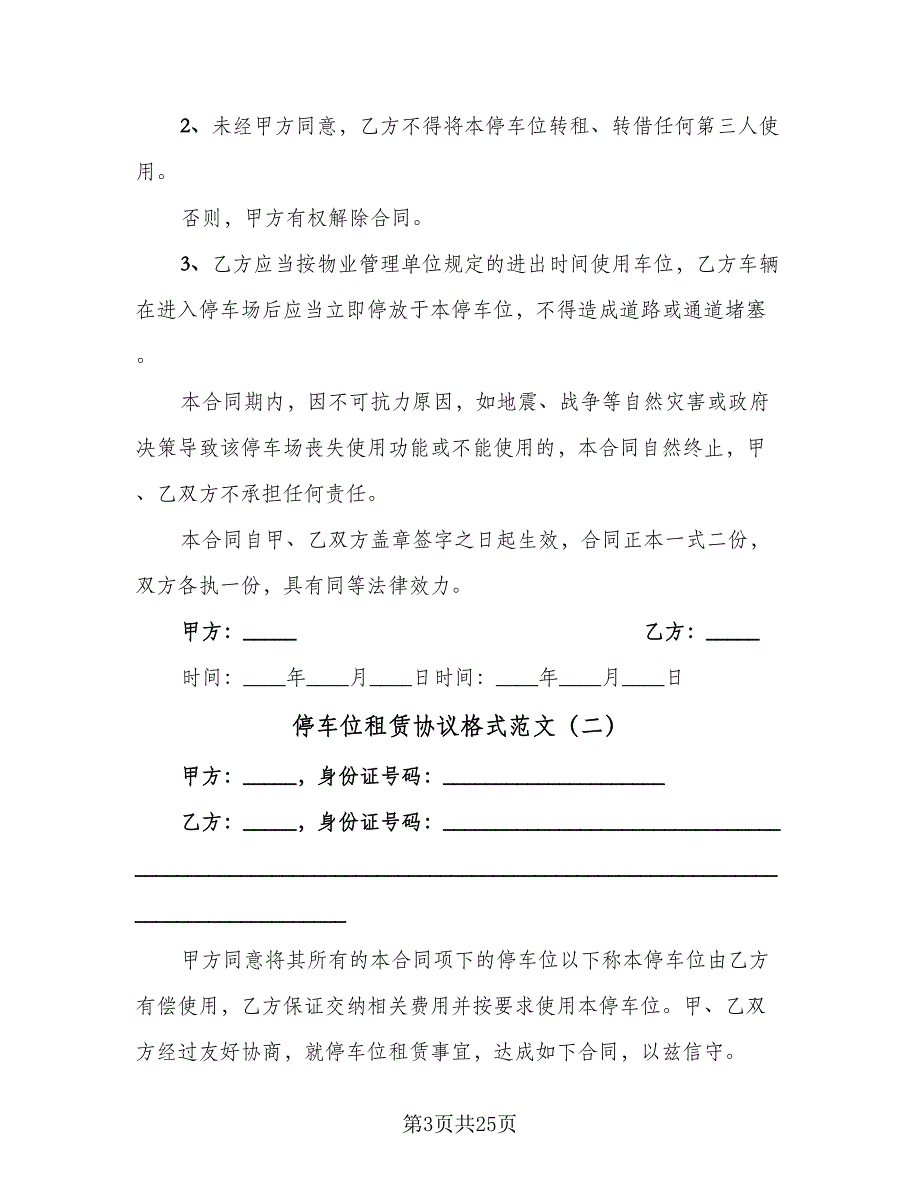 2、未经甲方同意，乙方不得将本停车位转租、转借任何第三人使
用。
否则，甲方有权解除合同。
3、乙方应当按物业管理单位规定的进出时间使用车位，乙方车辆
在进入停车场后应当立即停放于本停车位，不得造成道路或通道堵塞
。
本合同期内，因不可抗力原因，如地震、战争等自然灾害或政府
决策导致该停车场丧失使用功能或不能使用的，本合同自然终止，甲
、乙双方不承担任何责任。
本合同自甲、乙双方盖章签字之日起生效，合同正本一式二份，
双方各执一份，具有同等法律效力。
甲方：_____ 乙方：_____
时间：____年____月____日时间：____年____月____日
停车位租赁协议格式范文（二）
甲方：_____，身份证号码：_____________________
乙方：_____，身份证号码：________________________________
_____________________________________________________________
____________________
甲方同意将其所有的本合同项下的停车位以下称本停车位由乙方
有偿使用，乙方保证交纳相关费用并按要求使用本停车位。甲、乙双
方经过友好协商，就停车位租赁事宜，达成如下合同，以兹信守。
第3页共25页